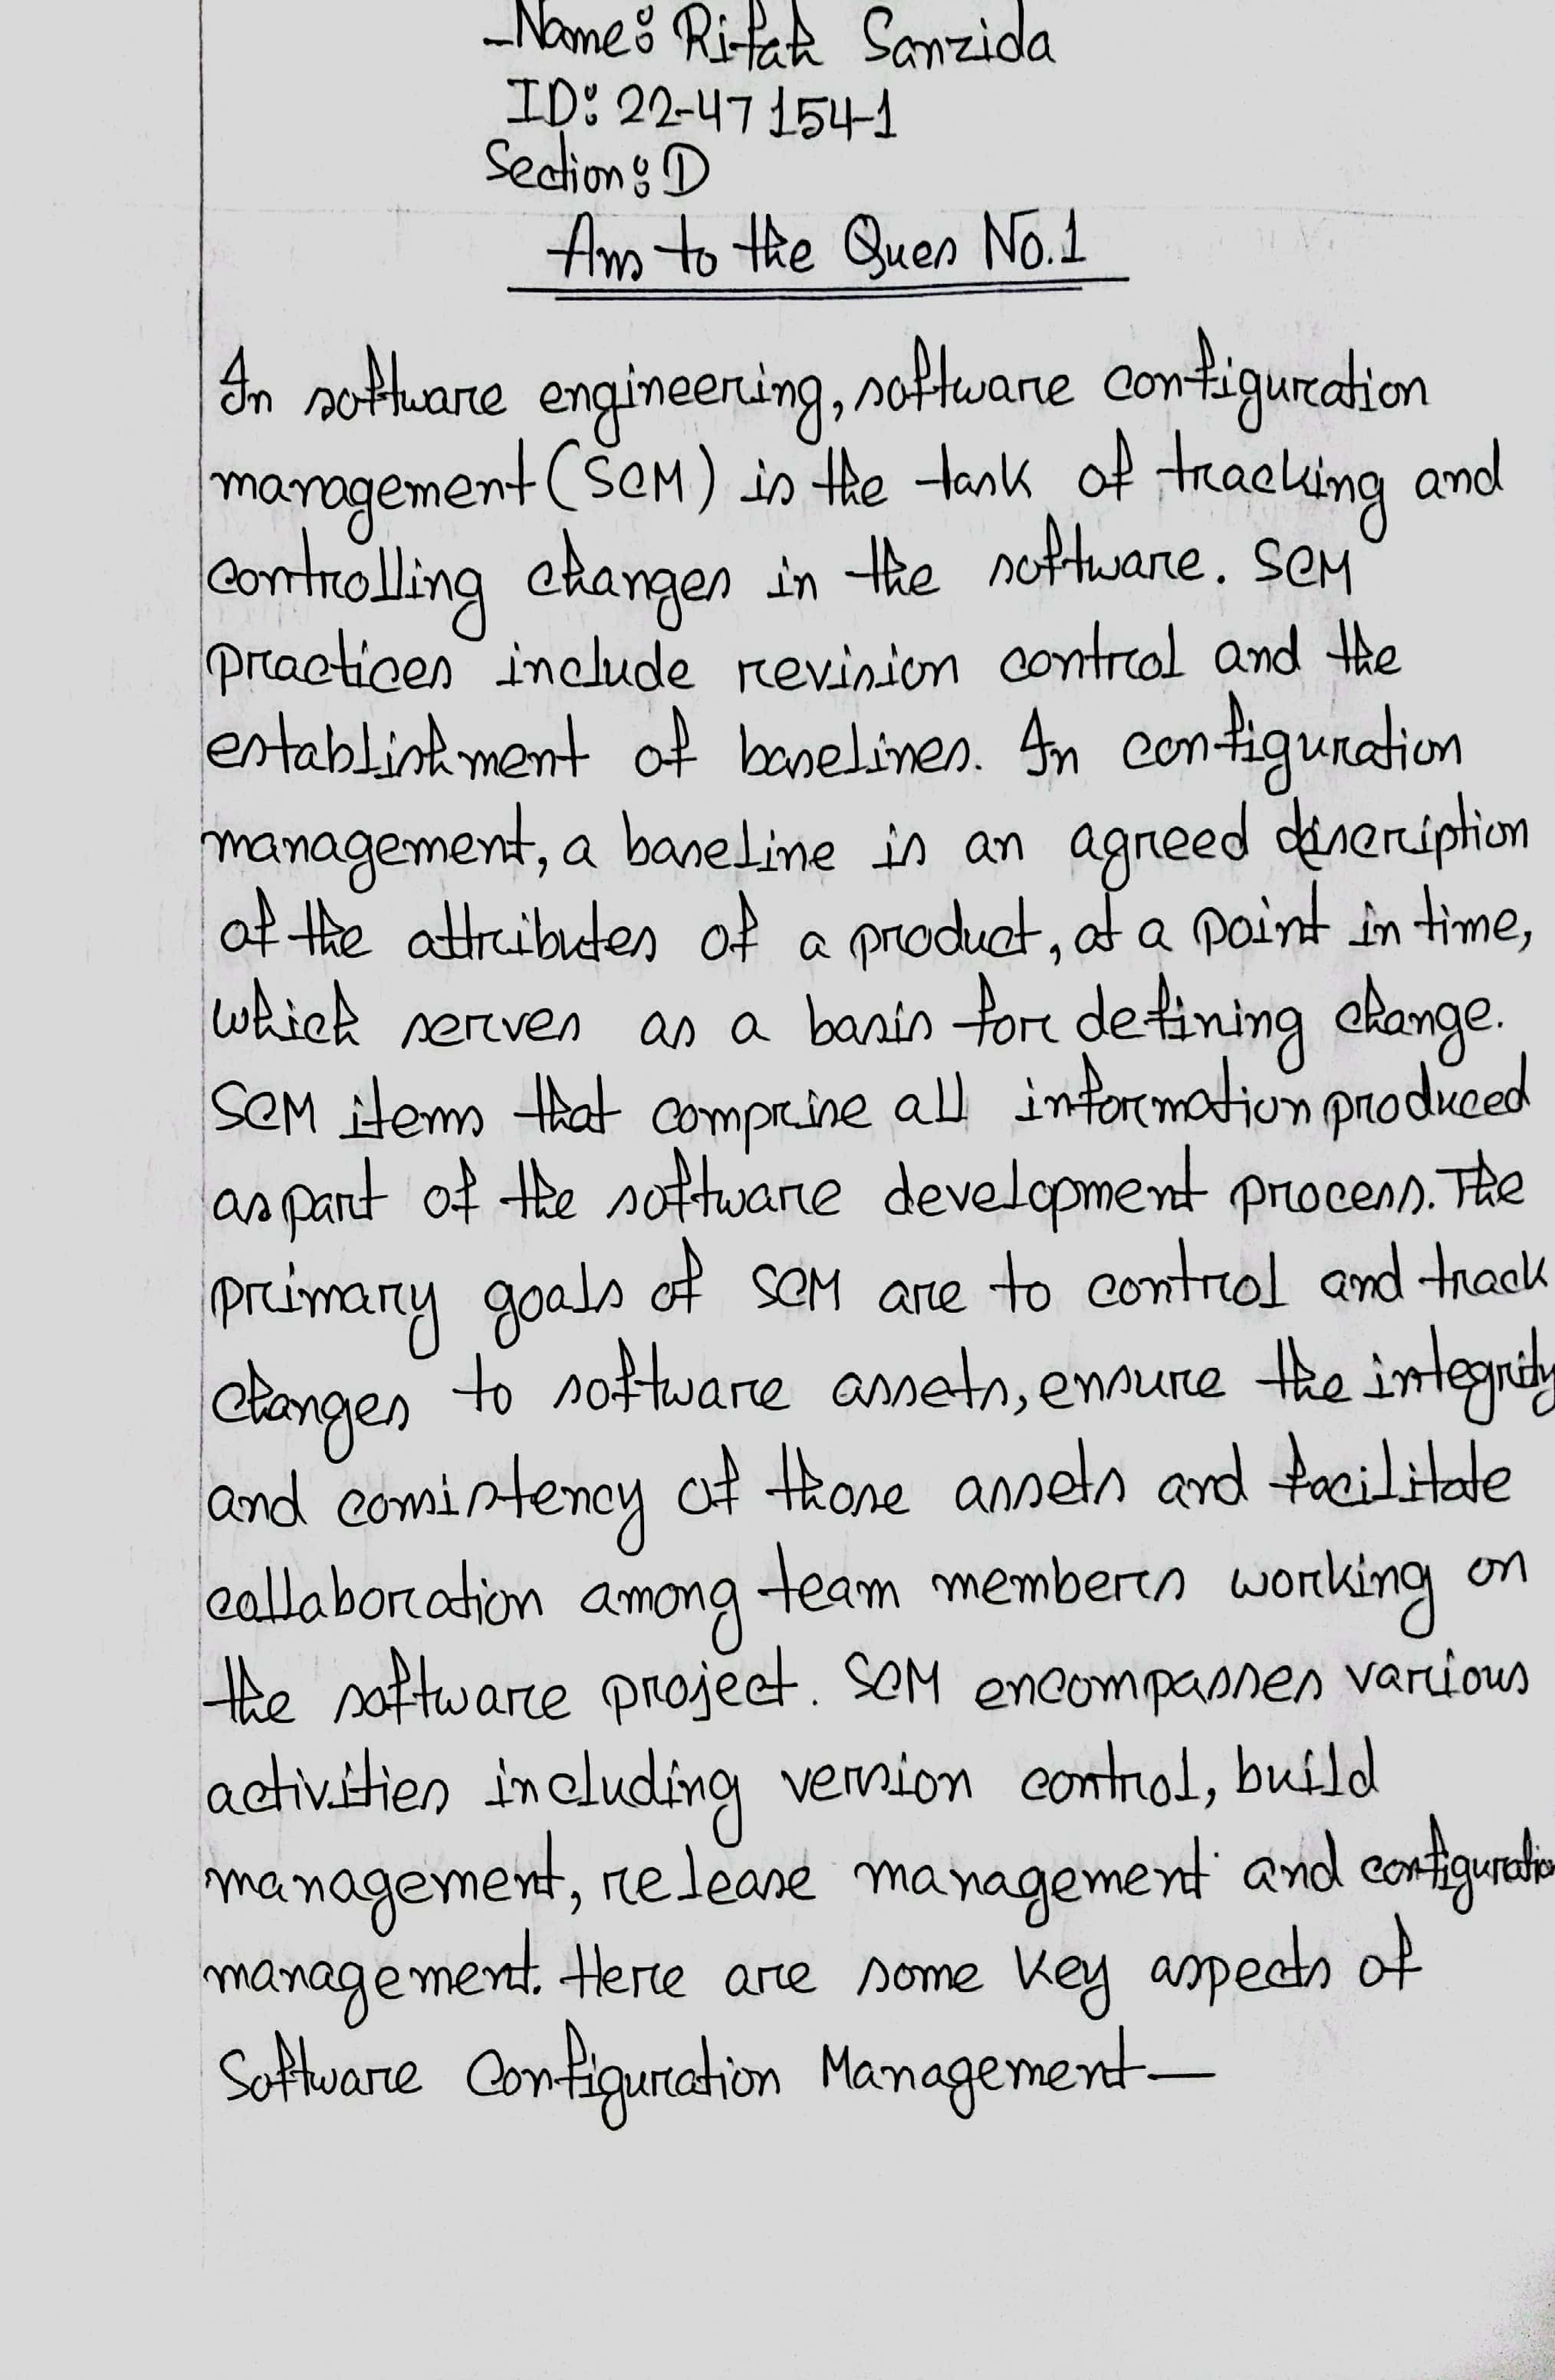 Name: Rifah Sanzida
ID: 22-47154-1
Section: D
Ans to the Ques No.1
In software engineering, software configuration
management (SCM) is the task of tracking and
controlling changes in the software. SCM
practices include revision control and the
establishment of baselines. In configuration
management, a baseline is an agreed description
of the attributes of a product, at a point in time,
which serves as a basis for defining change.
SCM items that comprise all information produced
as part of the software development process. The
primary goals of SCM are to control and track
changes to software assets, ensure the integrity
and consistency of those assets and facilitate
collaboration among team members working on
the software project. SCM encompasses various
activities including version control, build
management, release management and configuration
management. Here are some key aspects of
Software Configuration Management—